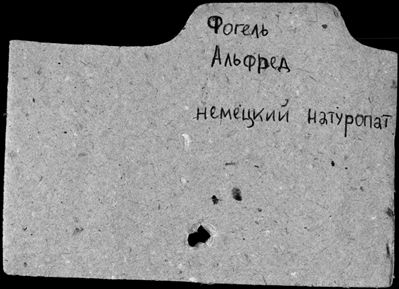 Фогель
Альфред
немецкий натуропат